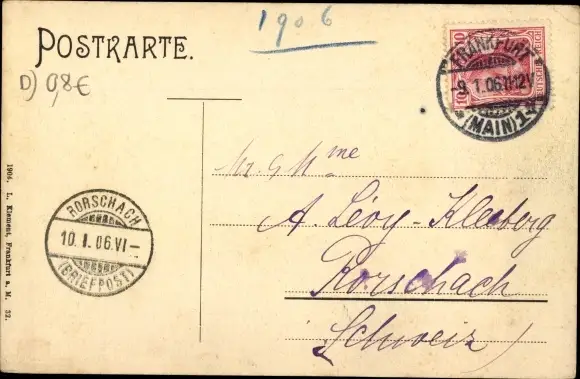 1906
POSTKARTE.
D) 0,8€
FRANKFURT
-9.1.06.11-12V.
(MAIN) 1
10
10
DEUTSCHES REICH
Mr. & Mme
A. Lévy-Kleeberg
Rorschach
Schweiz
RORSCHACH
10.I.06.VI-
(BRIEFPOST)
1904. L. Klement, Frankfurt a. M. 32.